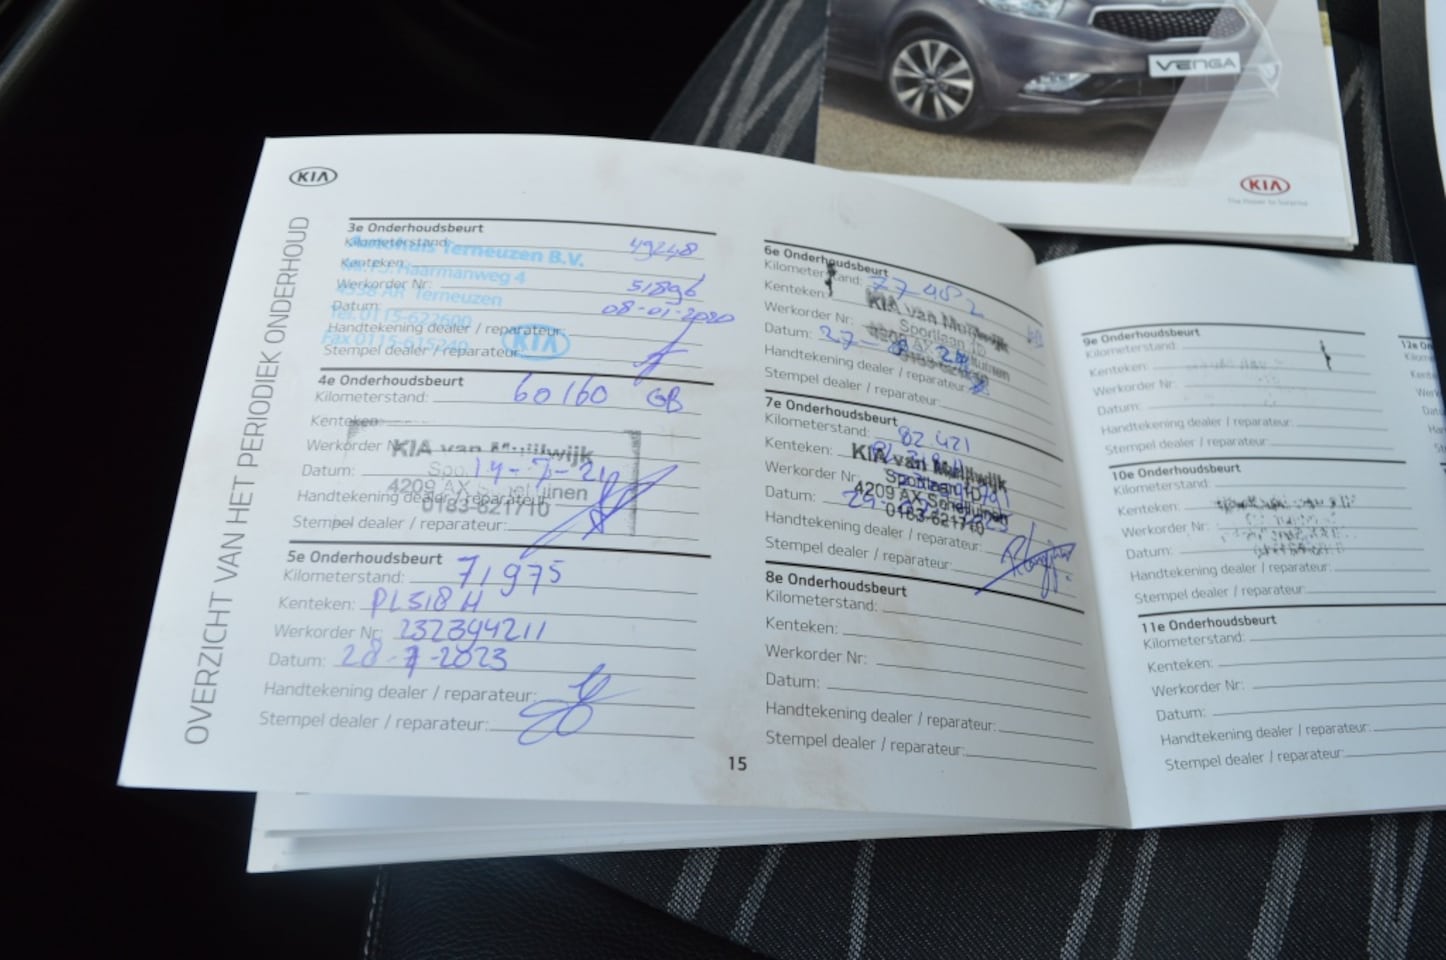 VENGA
KIA
The Power to Surprise
KIA
OVERZICHT VAN HET PERIODIEK ONDERHOUD
3e Onderhoudsbeurt
Kilometerstand: 49248
Autohuis Terneuzen B.V.
Kenteken:
Mr. F.J. Haarmanweg 4
Werkorder Nr: 51896
4538 AR Terneuzen
Datum: 08-01-2020
Tel. 0115-622600
Handtekening dealer / reparateur:
Fax 0115-615240 KIA
Stempel dealer / reparateur:
4e Onderhoudsbeurt
Kilometerstand: 60160 GB
Kenteken:
Werkorder Nr
KIA van Muijlwijk
Datum: 14-7-21
4209 AX Schelluinen
Handtekening dealer / reparateur
0183-621710
Stempel dealer / reparateur:
5e Onderhoudsbeurt
Kilometerstand: 71975
Kenteken: PL318H
Werkorder Nr: 232394211
Datum: 28-7-2023
Handtekening dealer / reparateur:
Stempel dealer / reparateur:
6e Onderhoudsbeurt
Kilometerstand: 77 452
Kenteken:
KIA van Muijlwijk
Werkorder Nr:
Sportlaan 1D
4209 AX Schelluinen
Datum: 27-
0183-621710
Handtekening dealer / reparateur:
Stempel dealer / reparateur:
7e Onderhoudsbeurt
Kilometerstand: 82.421
Kenteken:
KIA van Muijlwijk
Werkorder Nr
Sportlaan 1D
4209 AX Schelluinen
Datum:
0183-621710
Handtekening dealer / reparateur:
Stempel dealer / reparateur:
8e Onderhoudsbeurt
Kilometerstand:
Kenteken:
Werkorder Nr:
Datum:
Handtekening dealer / reparateur:
Stempel dealer / reparateur:
15
9e Onderhoudsbeurt
Kilometerstand:
Kenteken:
Werkorder Nr:
Datum:
Handtekening dealer / reparateur:
Stempel dealer / reparateur:
10e Onderhoudsbeurt
Kilometerstand:
Kenteken:
Werkorder Nr:
Datum:
Handtekening dealer / reparateur:
Stempel dealer / reparateur:
11e Onderhoudsbeurt
Kilometerstand:
Kenteken:
Werkorder Nr:
Datum:
Handtekening dealer / reparateur:
Stempel dealer / reparateur:
12e On